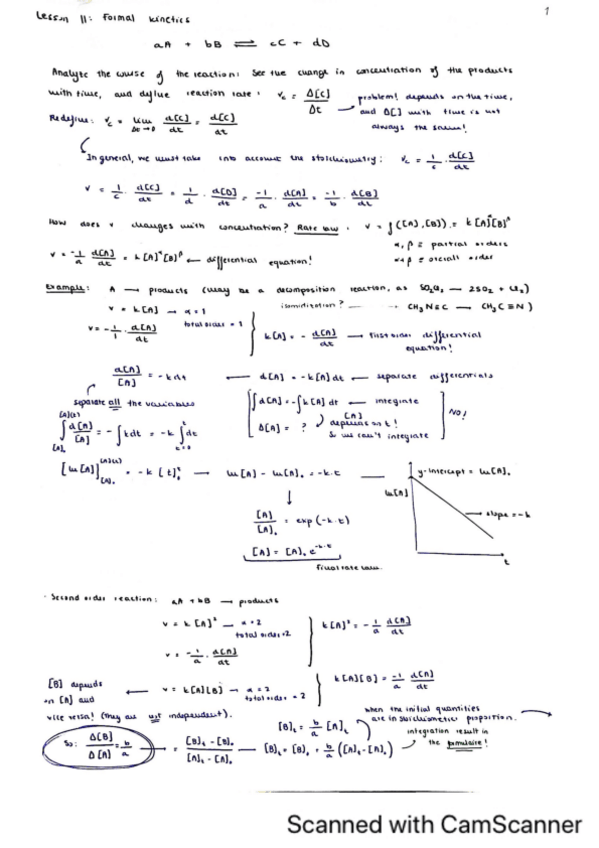 Lesson 11: Formal kinetics
1
aA + bB ⇌ cC + dD
Analyze the course of the reaction: See the change in concentration of the products
with time, and define reaction rate: v_c = Δ[C]/Δt → problem! depends on the time,
and Δ[] with time is not
always the same!
Redefine: v_c = lim Δt→0 Δ[C]/Δt = d[C]/dt
In general, we must take into account the stoichiometry: v_c = 1/c · d[C]/dt
v = 1/c · d[C]/dt = 1/d · d[D]/dt = -1/a · d[A]/dt = -1/b · d[B]/dt
How does v changes with concentration? Rate law. v = f([A],[B]) = k[A]^α[B]^β
α, β ≡ partial orders
α+β ≡ overall order
v = -1/a d[A]/dt = k[A]^α[B]^β ← differential equation!
Example: A → products (may be a decomposition reaction, as SO₂Cl₂ → SO₂ + Cl₂)
isomerization? → CH₃N≡C → CH₃C≡N)
v = k[A] → α = 1
total order = 1
v = -1/1 · d[A]/dt
k[A] = - d[A]/dt → first order differential
equation!
d[A]/[A] = -k dt ← d[A] = -k[A] dt ← separate differentials
separate all the variables
∫d[A] = -∫k[A] dt ← integrate
Δ[A] = ? [A] depends on t!
So we can't integrate
NO!
∫_{[A]₀}^{[A](t)} d[A]/[A] = -∫k dt = -k ∫_{t=0}^{t} dt
[ln[A]]_{[A]₀}^{[A](t)} = -k [t]₀^t → ln[A] - ln[A]₀ = -k·t
y-intercept = ln[A]₀
ln[A]
slope = -k
t
[A]/[A]₀ = exp(-k·t)
[A] = [A]₀ e^{-k·t}
final rate law.
· Second order reaction: aA + bB → products
v = k[A]² → α = 2
total order = 2
v = -1/a · d[A]/dt
k[A]² = -1/a d[A]/dt
[B] depends
on [A] and
vice versa! (they are not independent).
← v = k[A][B] →
total order = 2
k[A][B] = -1/a d[A]/dt
when the initial quantities
are in stoichiometric proportion.
[B]_t = b/a [A]_t
integration result in
the formulaire!
So: Δ[B]/Δ[A] = b/a → = [B]_t - [B]₀ / [A]_t - [A]₀ → [B]_t = [B]₀ + b/a ([A]_t - [A]₀)
Scanned with CamScanner